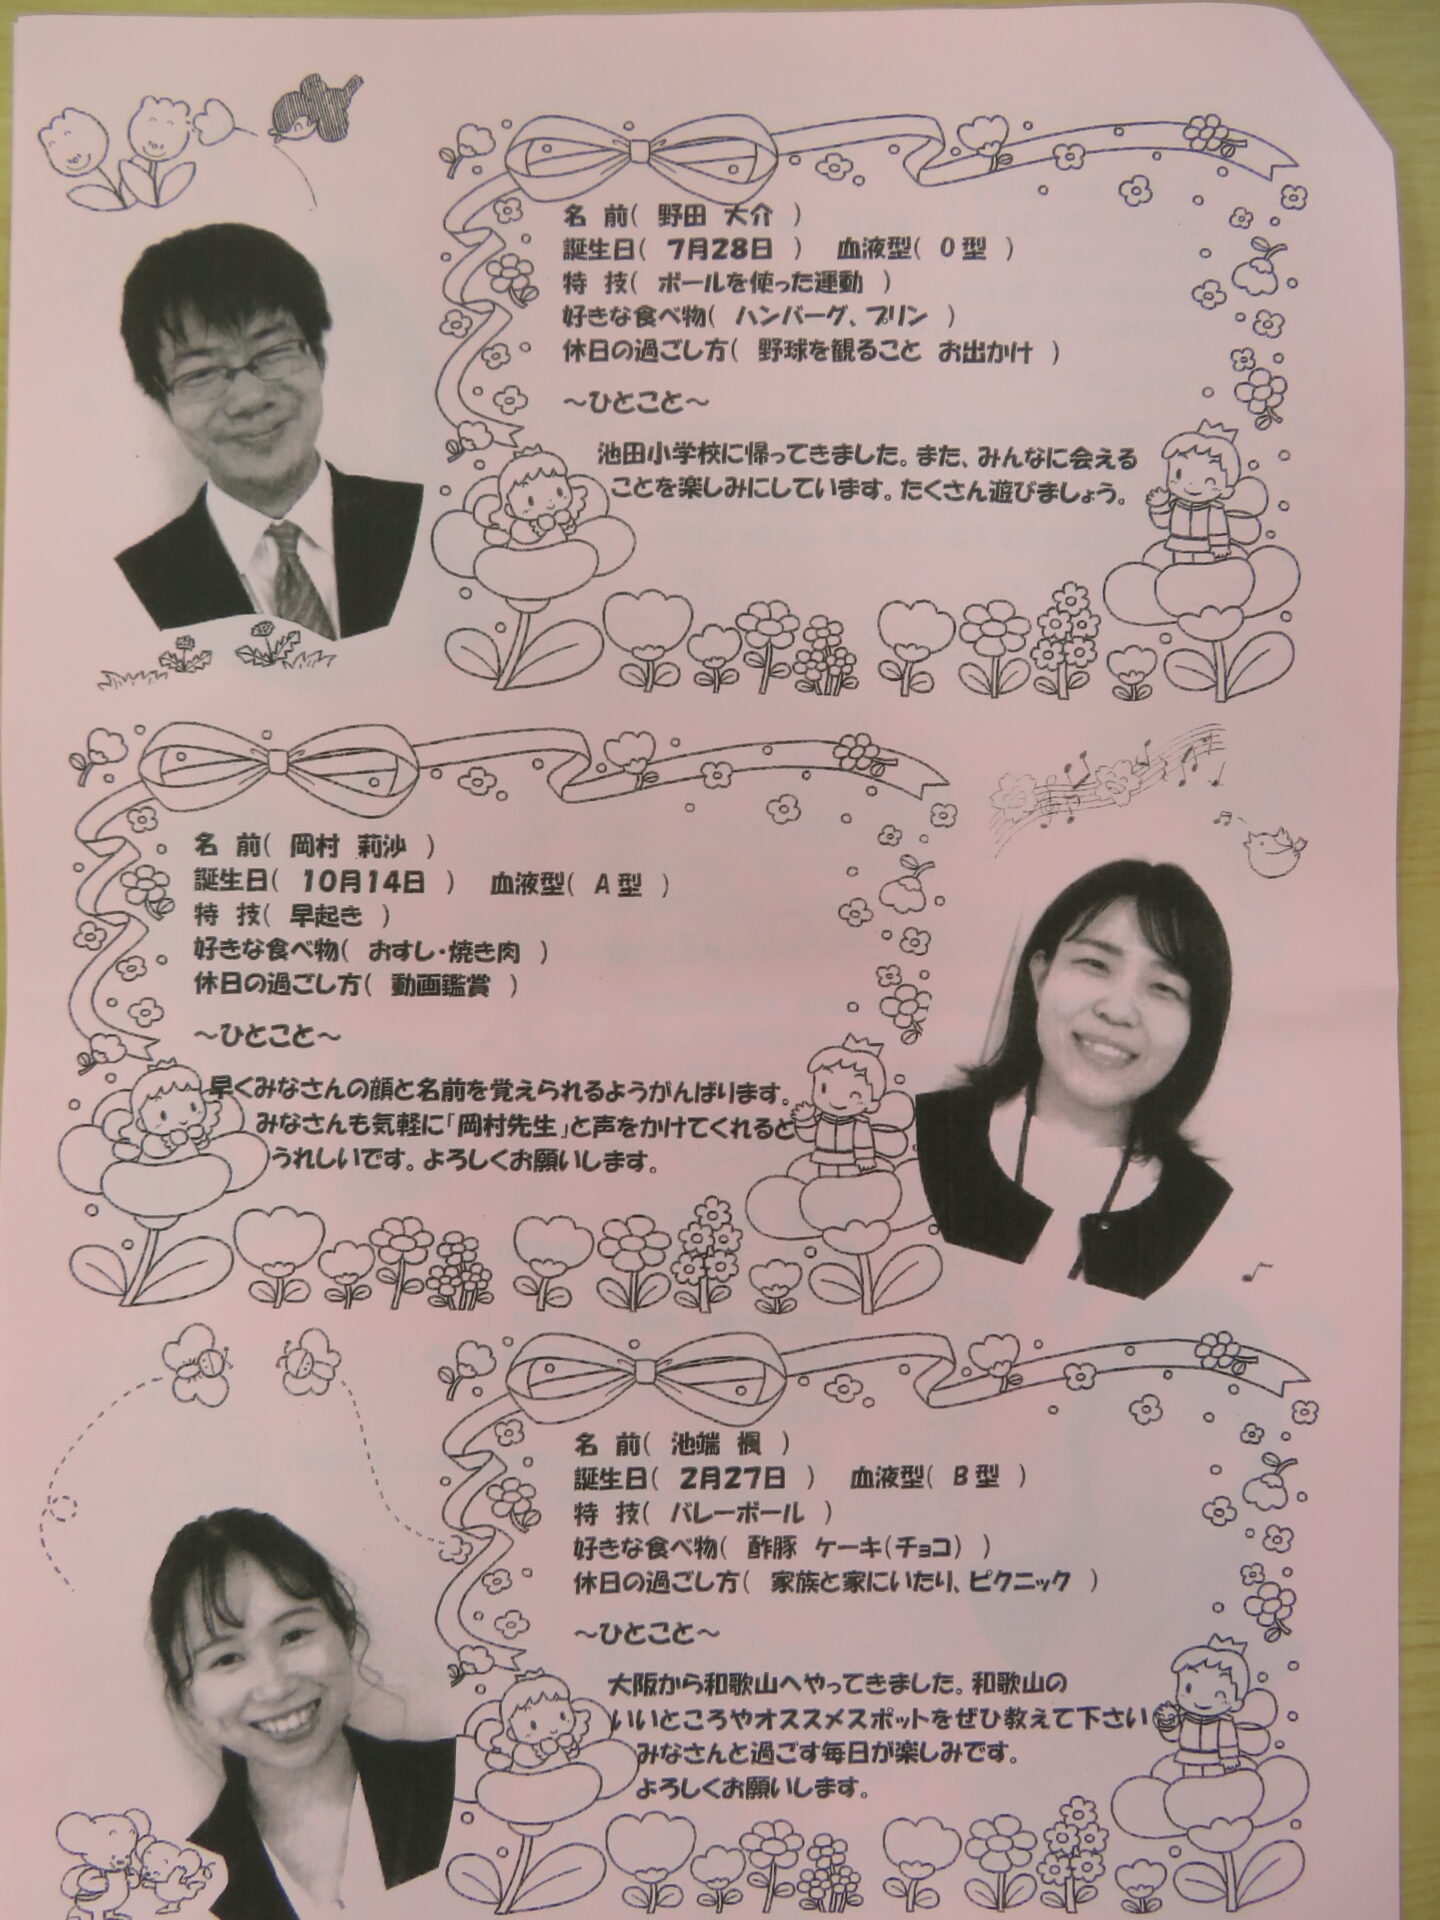 名 前( 野田 大介 )
誕生日( 7月28日 ) 血液型( O型 )
特 技( ボールを使った運動 )
好きな食べ物( ハンバーグ、プリン )
休日の過ごし方( 野球を観ること お出かけ )
～ひとこと～
池田小学校に帰ってきました。また、みんなに会える
ことを楽しみにしています。たくさん遊びましょう。
名 前( 岡村 莉沙 )
誕生日( 10月14日 ) 血液型( A型 )
特 技( 早起き )
好きな食べ物( おすし・焼き肉 )
休日の過ごし方( 動画鑑賞 )
～ひとこと～
早くみなさんの顔と名前を覚えられるようがんばります。
みなさんも気軽に「岡村先生」と声をかけてくれると
うれしいです。よろしくお願いします。
名 前( 池端 楓 )
誕生日( 2月27日 ) 血液型( B型 )
特 技( バレーボール )
好きな食べ物( 酢豚 ケーキ(チョコ) )
休日の過ごし方( 家族と家にいたり、ピクニック )
～ひとこと～
大阪から和歌山へやってきました。和歌山の
いいところやオススメスポットをぜひ教えて下さい
みなさんと過ごす毎日が楽しみです。
よろしくお願いします。